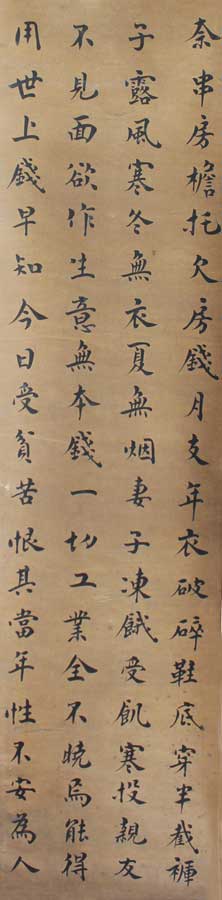 奈串房檐托欠房錢月支年衣破碎鞋底穿半截褲
子露風寒冬無衣夏無烟妻子凍餓受飢寒投親友
不見面欲作生意無本錢一切工業全不曉焉能得
用世上錢早知今日受貧苦恨其當年性不安為人